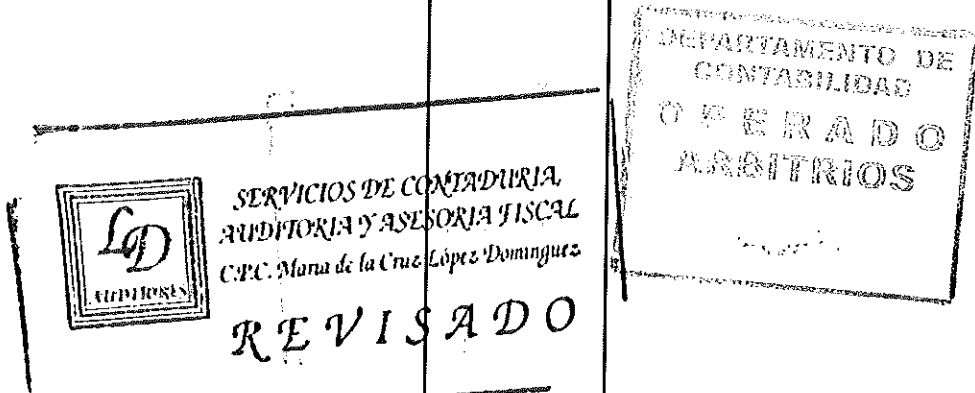 LD
AUDITORES
SERVICIOS DE CONTADURIA,
AUDITORIA Y ASESORIA FISCAL
C.P.C. Maria de la Cruz López Dominguez
REVISADO
DEPARTAMENTO DE
CONTABILIDAD
OPERADO
ARBITRIOS